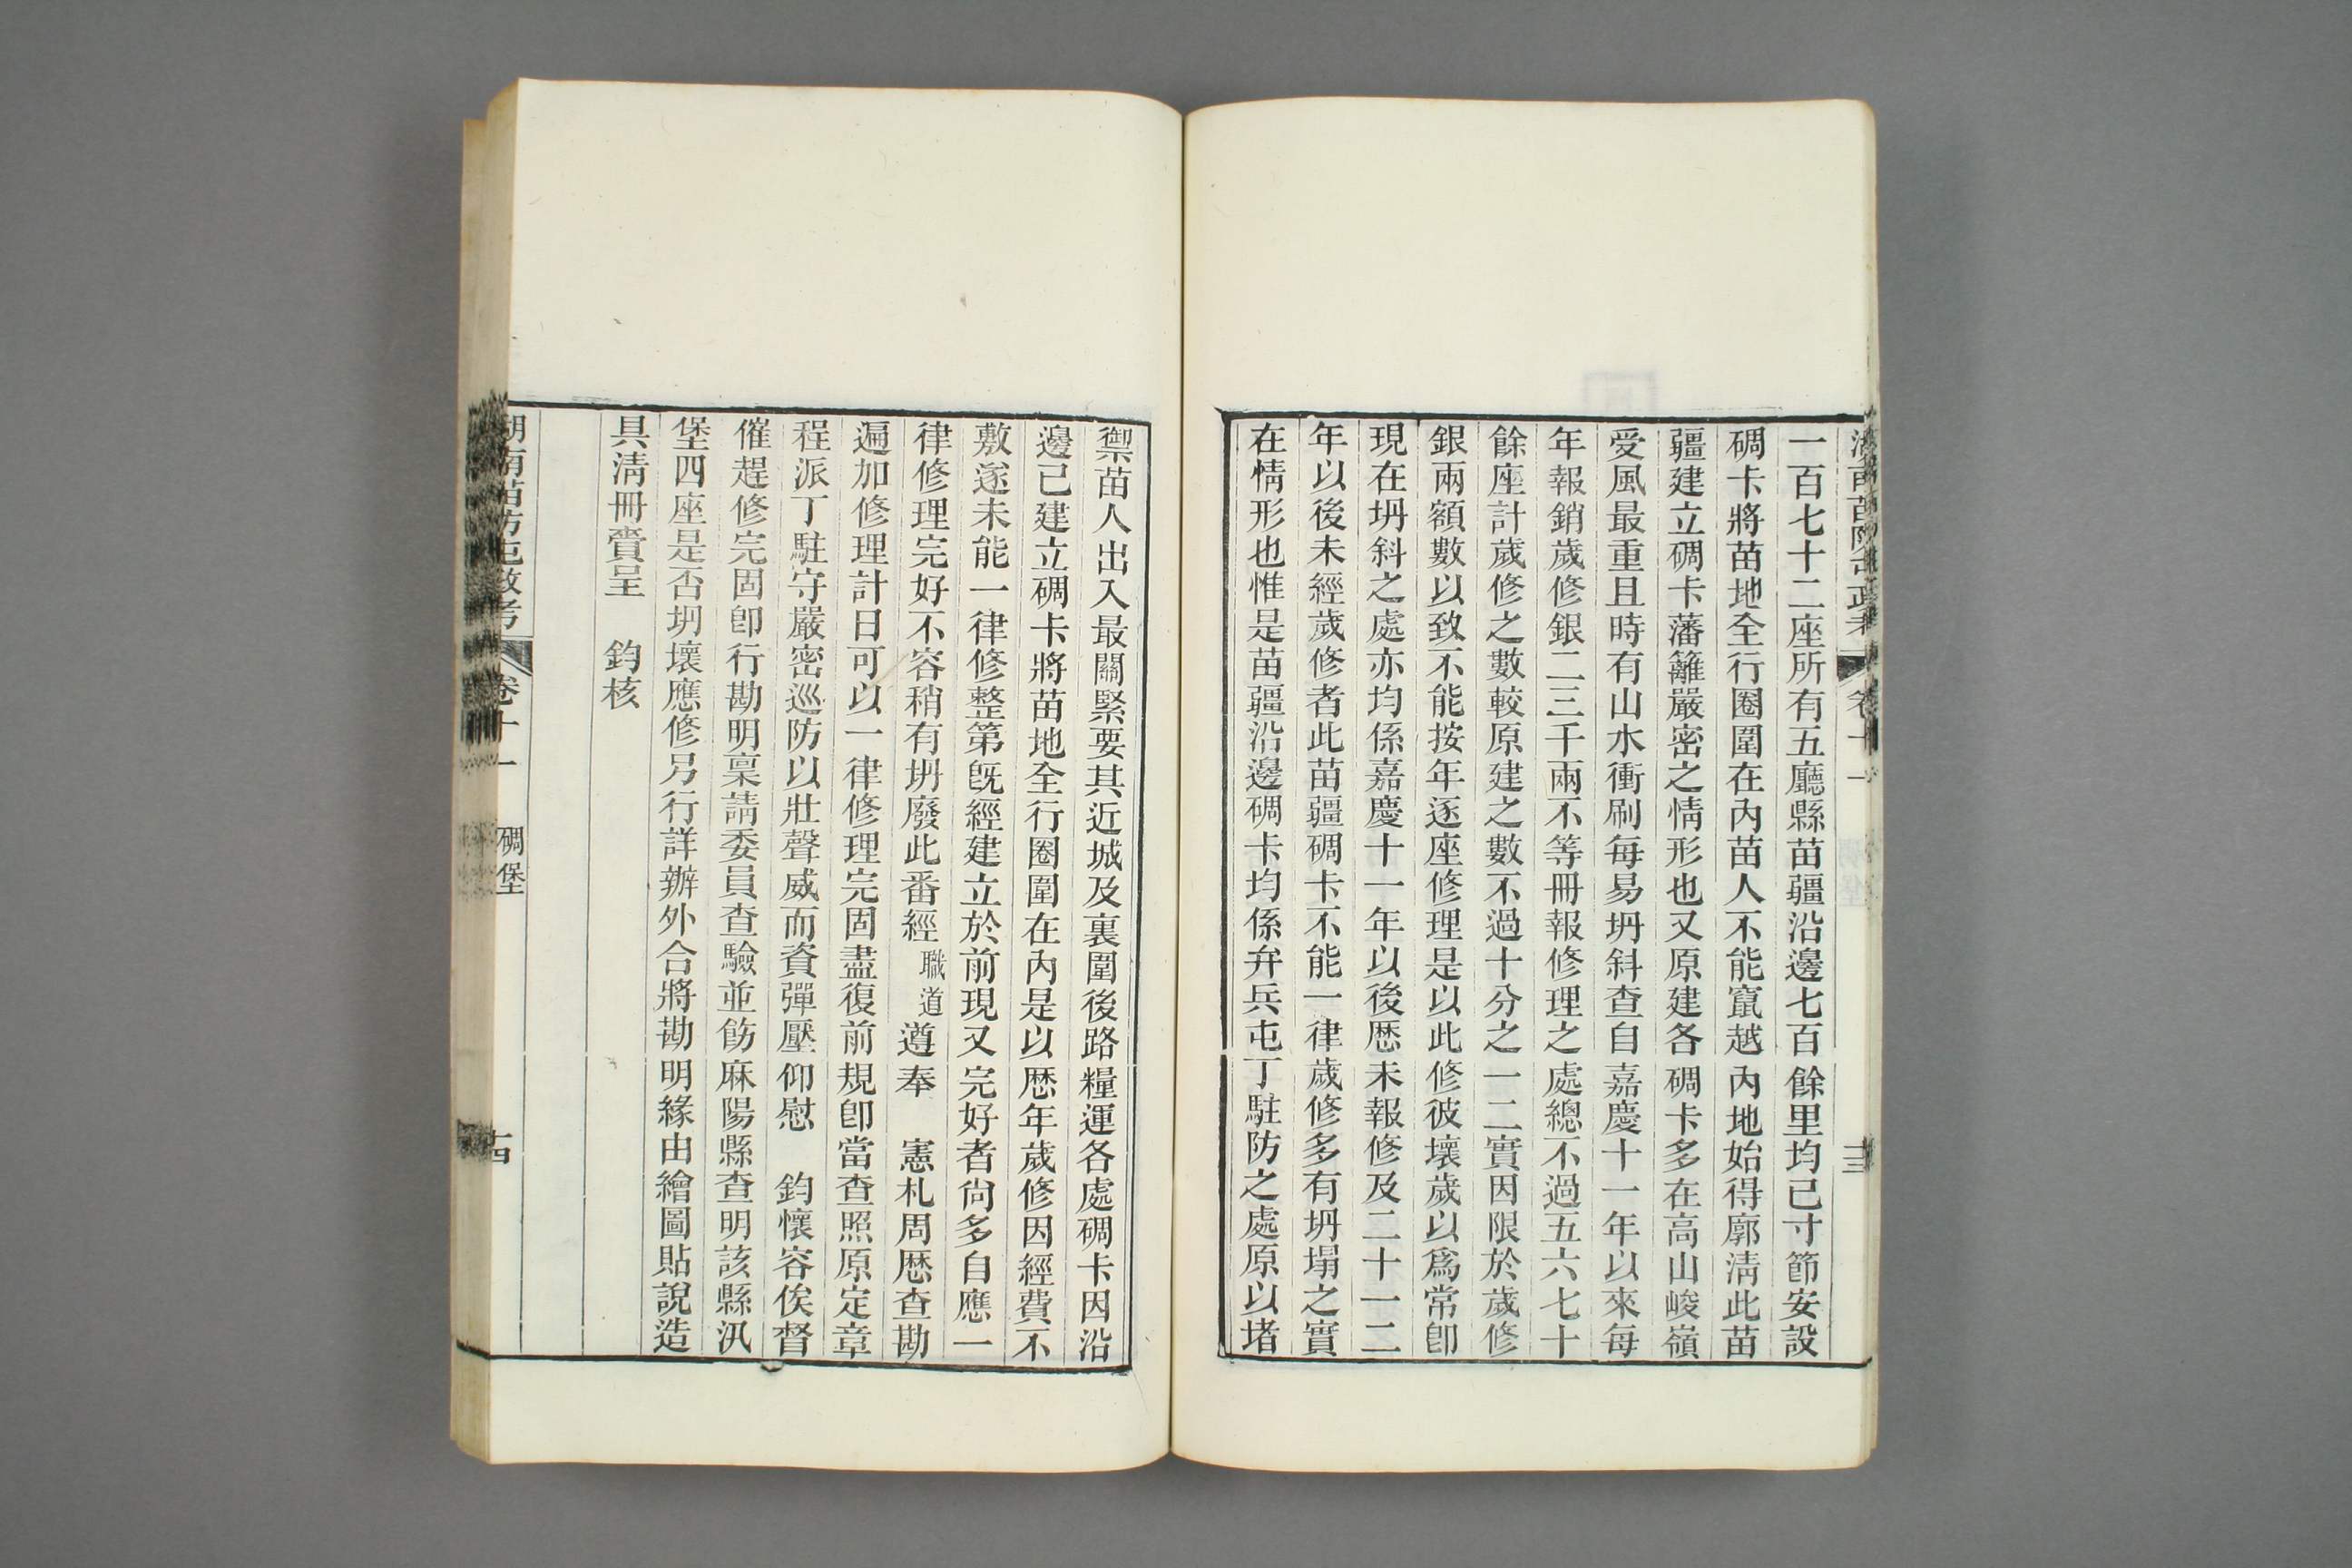 一百七十二座所有五廳縣苗疆沿邊七百餘里均已寸節安設
碉卡將苗地全行圈圍在內苗人不能竄越內地始得廓清此苗
疆建立碉卡藩籬嚴密之情形也又原建各碉卡多在高山峻嶺
受風最重且時有山水衝刷每易坍斜查自嘉慶十一年以來每
年報銷歲修銀二三千兩不等冊報修理之處總不過五六七十
餘座計歲修之數較原建之數不過十分之一二實因限於歲修
銀兩額數以致不能按年逐座修理是以此修彼壞歲以爲常卽
現在坍斜之處亦均係嘉慶十一年以後厯未報修及二十一二
年以後未經歲修者此苗疆碉卡不能一律歲修多有坍塌之實
在情形也惟是苗疆沿邊碉卡均係弁兵屯丁駐防之處原以堵
禦苗人出入最關緊要其近城及裏圍後路糧運各處碉卡因沿
邊已建立碉卡將苗地全行圈圍在內是以厯年歲修因經費不
敷遂未能一律修整第既經建立於前現又完好者尙多自應一
律修理完好不容稍有坍廢此番經職道遵奉　憲札周厯查勘
遍加修理計日可以一律修理完固盡復前規卽當查照原定章
程派丁駐守嚴密巡防以壯聲威而資彈壓仰慰　鈞懷容俟督
催趕修完固卽行勘明稟請委員查驗並飭麻陽縣查明該縣汛
堡四座是否坍壞應修另行詳辦外合將勘明緣由繪圖貼說造
具清冊賫呈　鈞核
湖南苗防屯政考　卷十一　碉堡　十四